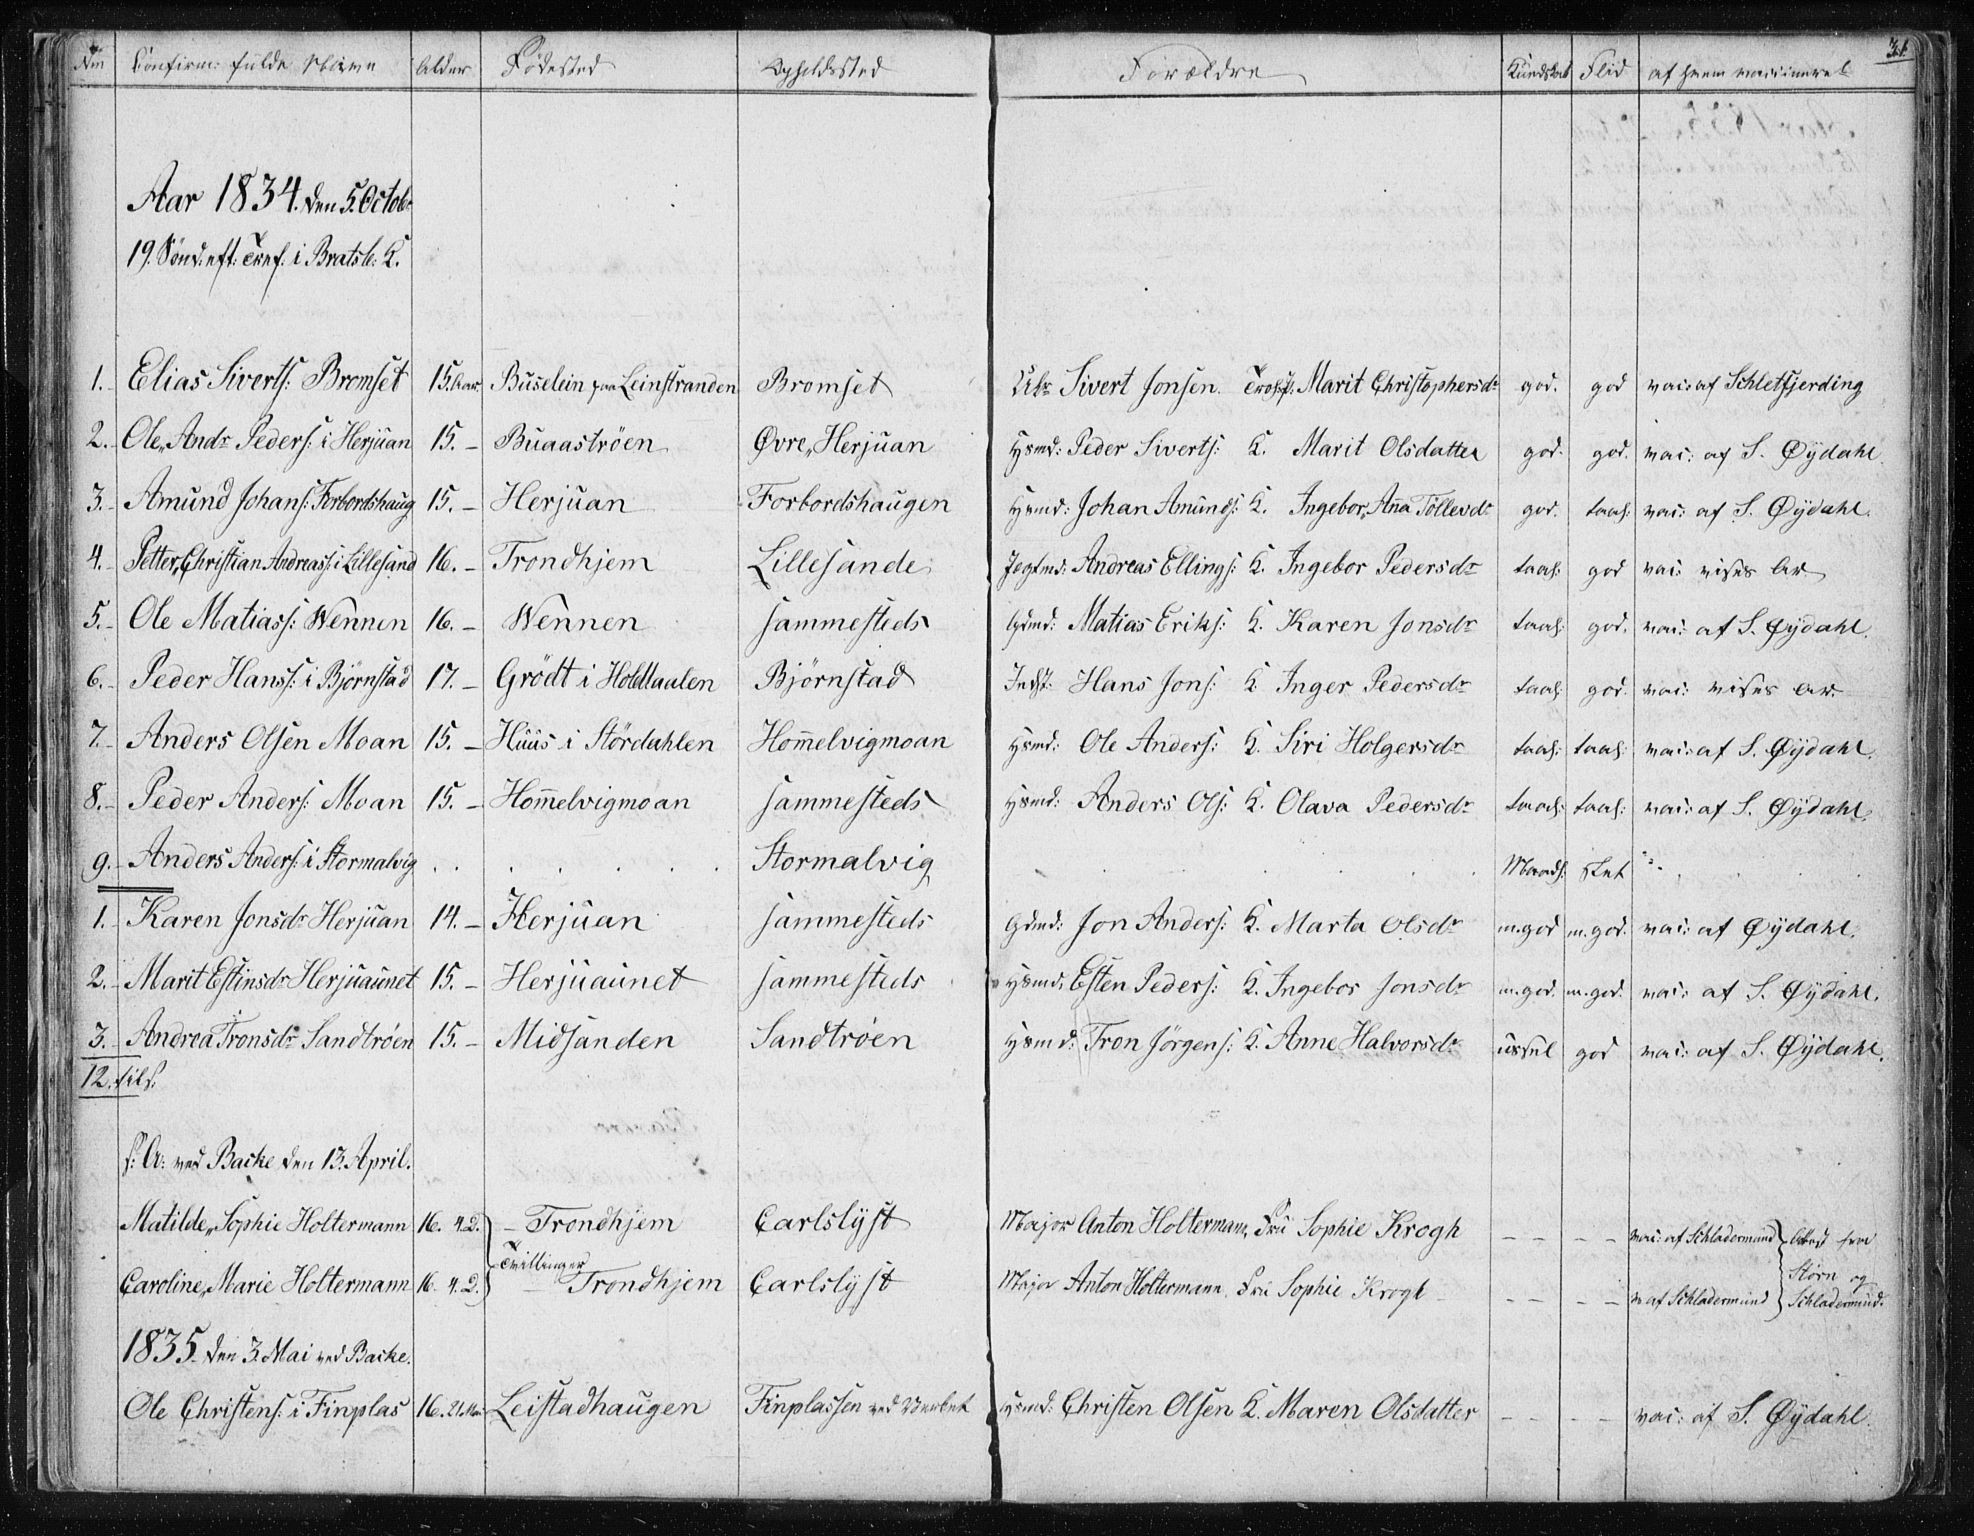 31
Nm Confirm: fulde Navne Alder Fødested Opholdssted Forældre Kundskab Flid af hvem vaccineret
Aar 1834. den 5. Octobr
19. Sønd: eft: Tref. i Bratsb: K.
1. Elias Siverts: Bromset 15. Aar. Buselein paa Leinstranden Bromset Sivert Jonsen. Marit Christophersdr god. god vac: af Schletfjerding
2. Ole, Andr Peders: i Herjuan 15. – Buaastrøen Øvre, Herjuan Hsmd: Peder Siverts: K. Marit Olsdatter god. god. vac: af S. Øydahl.
3. Amund Johans: Forbordshaug 15. – Herjuan Forbordshaugen Hsmd: Johan Amunds: K. Ingebor, Anna Tollevdr god. taal: vac: af S. Øydahl.
4. Petter, Christian Andreass: i Lillesand 16. – Trondhjem Lillesande Jegtmd: Andreas Ellings: K. Ingebor Pedersdr taal: god vac: vises ar
5. Ole Matiass: Wennen 16. – Wennen sammesteds Gdmd: Matias Eriks: K. Karen Jonsdr taal: god. vac: af S. Øydahl.
6. Peder Hanss: i Bjørnstad 17. – Grödt i Holdtaalen Bjørnstad Indst: Hans Jons: K. Inger Pedersdr taal: god. vac: vises ar.
7. Anders Olsen Moan 15. – Huus i Stördahlen Hom̄elvigmoan Hsmd: Ole Anders: K. Siri Holgersdr taal: taal: vac: af S. Øydahl.
8. Peder Anders: Moan 15. – Hom̄elvigmoan sammesteds Hsmd: Anders Ols: K. Olava Pedersdr taal: taal: vac: af S. Øydahl.
9. Anders Anders: i Stormalvig . . . . . . . Stormalvig . . . . Maadl: slet " .
1. Karen Jonsdr Herjuan 14. – Herjuan sammesteds Gdmd: Jon Anders: K. Marta Olsdr m. god m. god. vac: af Øydahl.
2. Marit Estinsdr Herjuaunet 15. – Herjuaunet sammesteds Hsmd: Esten Peders: K. Ingebor Jonsdr m. god. m. god. vac: af S. Øydahl.
3. Andrea Tronsdr Sandtrøen 15. – Midsanden Sandtrøen Hsmd: Tron Jörgens: K. Anne Halvorsdr ussel god vac: af S. Øydahl.
12. tils.
s: A: ved Backe den 13. April.
Matilde, Sophie Holtermann 16. 4. D. – Trondhjem Carlslyst Major Anton Holtermann, Fru Sophie Krogh – – – – vac: af Schladermund Attest fra
Tvillinger
Caroline, Marie Holtermann 16. 4. D. – Trondhjem Carlslyst Major Anton Holtermann, Fru Sophie Krogh – – – – v af Schladermund Störn og Schladermund.
1835. den 3. Mai ved Backe.
Ole Christens: i Finplas 16. Leistadhaugen Finplassen ved Hsmd: Christen Olsen K. Maren Olsdatter – – – – vac: af S. Øydahl.